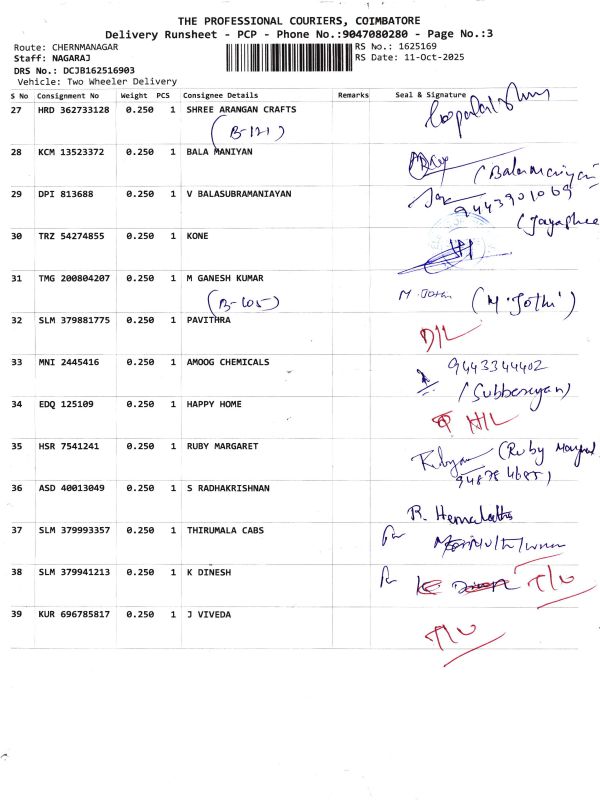 THE PROFESSIONAL COURIERS, COIMBATORE
Delivery Runsheet - PCP - Phone No.:9047080280 - Page No.:3
Route: CHERNMANAGAR
RS No.: 1625169
Staff: NAGARAJ
RS Date: 11-Oct-2025
DRS No.: DCJB162516903
Vehicle: Two Wheeler Delivery
S No Consignment No Weight PCS Consignee Details Remarks Seal & Signature
27 HRD 362733128 0.250 1 SHREE ARANGAN CRAFTS
(B-121)
28 KCM 13523372 0.250 1 BALA MANIYAN
(Balamaniyan
29 DPI 813688 0.250 1 V BALASUBRAMANIAYAN
9443901069
(Jayashree
30 TRZ 54274855 0.250 1 KONE
31 TMG 200804207 0.250 1 M GANESH KUMAR
(B-105)
M. Jothi (M. Jothi)
32 SLM 379881775 0.250 1 PAVITHRA
D/L
33 MNI 2445416 0.250 1 AMOOG CHEMICALS
9443344402
(Subbarayan)
34 EDQ 125109 0.250 1 HAPPY HOME
H/L
35 HSR 7541241 0.250 1 RUBY MARGARET
(Ruby
36 ASD 40013049 0.250 1 S RADHAKRISHNAN
R. Hemalatha
37 SLM 379993357 0.250 1 THIRUMALA CABS
38 SLM 379941213 0.250 1 K DINESH
T/U
39 KUR 696785817 0.250 1 J VIVEDA
T/U